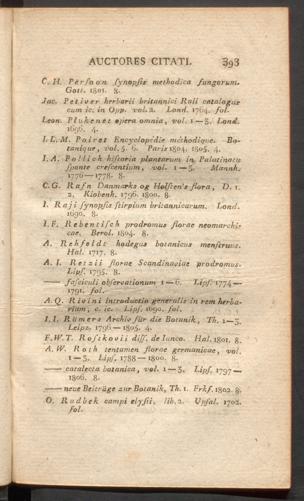 AUCTORES CITATI. 393
C. H. Persoon synopsis methodica fungorum.
Gott. 1801. 8.
Jac. Petiver herbarii britannici Raii catalogus
cum ic. in Opp. vol. 2. Lond. 1764. fol.
Leon. Plukenet opera omnia, vol. 1—8. Lond.
1696. 4.
I. L. M. Poiret Encyclopédie méthodique. Bo-
tanique, vol. 5. 6. Paris 1804. 1805. 4.
I. A. Pollich historia plantarum in Palatinatu
sponte crescentium, vol. 1—3. Mannh.
1776—1778. 8.
C. G. Rafn Danmarks og Holsten's flora, D. 1.
2. Kiobenh. 1796. 1800. 8.
I. Raji synopsis stirpium britannicarum. Lond.
1690. 8.
I. F. Rebentisch prodromus florae neomarchi-
cae. Berol. 1804. 8.
A. Rehfeldt hodegus botanicus menstruus.
Hal. 1717. 8.
A. I. Retzii florae Scandinaviae prodromus.
Lips. 1795. 8.
—— fasciculi observationum 1—6. Lips. 1774—
1791. fol.
A. Q. Rivini introductio generalis in rem herba-
riam, c. ic. Lips. 1690. fol.
I. I. Römers Archiv für die Botanik, Th. 1—3.
Leipz. 1796—1805. 4.
F. W. T. Rostkovii diss. de Iunco. Hal. 1801. 8.
A. W. Roth tentamen florae germanicae, vol.
1—3. Lips. 1788—1800. 8.
—— catalecta botanica, vol. 1—3. Lips. 1797—
1806. 8.
—— neue Beiträge zur Botanik, Th. 1. Frkf. 1802. 8.
O. Rudbek campi elysii, lib. 2. Upsal. 1702.
fol.